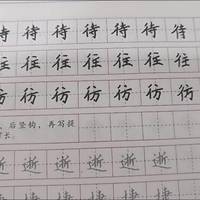 待待待待待待待
往往往往往往往
彷彷彷彷彷彷彷
后竖钩，再写提
长。
逝逝逝逝逝逝